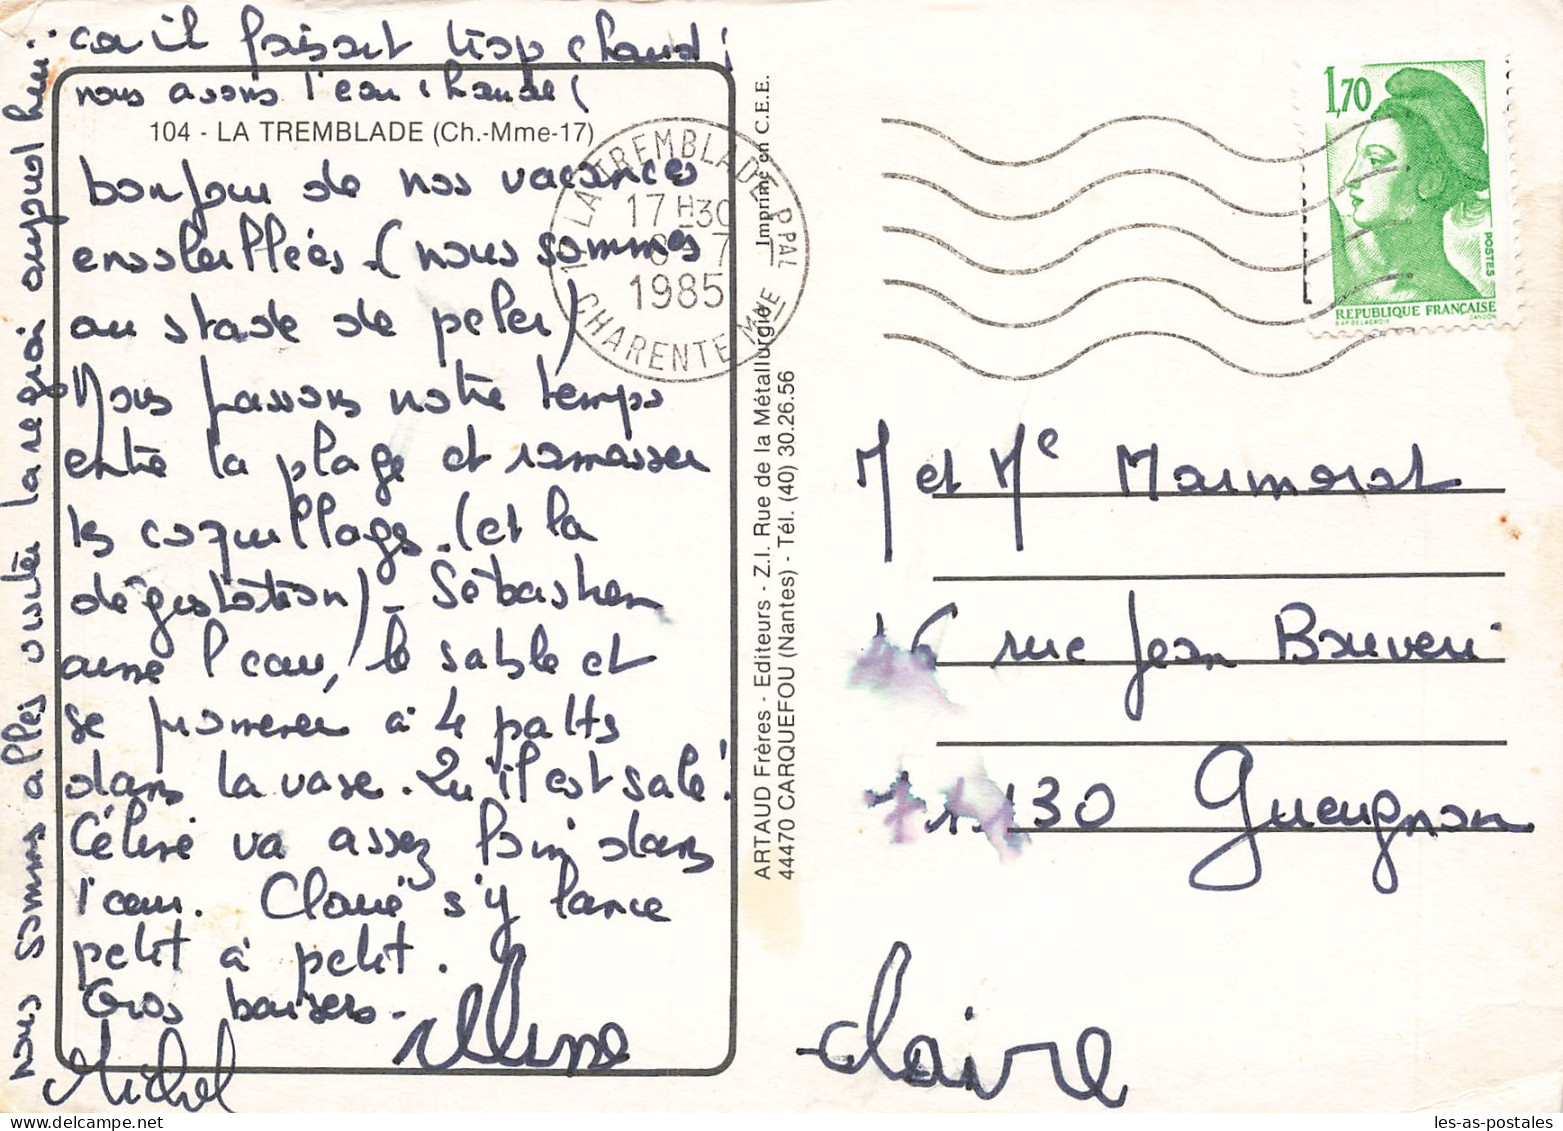 car il faisait trop chaud !
nous avons l'eau chaude !
104 - LA TREMBLADE (Ch.-Mme-17)
bonjour de nos vacances
ensoleillées. (nous sommes
au stade de peler)
Nous passons notre temps
entre la plage et ramasser
les coquillages. (et la
dégustation) - Sébastien
aime l'eau, le sable et
se promener à 4 pattes
dans la vase. Qu'il est sale !
Céline va assez loin dans
l'eau. Claire s'y lance
petit à petit.
Gros baisers.
Michel
Claire
nous sommes allés visiter la région aujourd'hui..
17 LA TREMBLADE PPAL
17 H30
8 - 7
1985
CHARENTE MME
Imprimé en C.E.E.
ARTAUD Frères - Editeurs - Z.I. Rue de la Métallurgie
44470 CARQUEFOU (Nantes) - Tél. (40) 30.26.56
1,70
POSTES
REPUBLIQUE FRANÇAISE
D'AP. DELACROIX GANDON
M et Me Marmorat
16 rue Jean Bouveri
71130 Gueugnon
les-as-postales